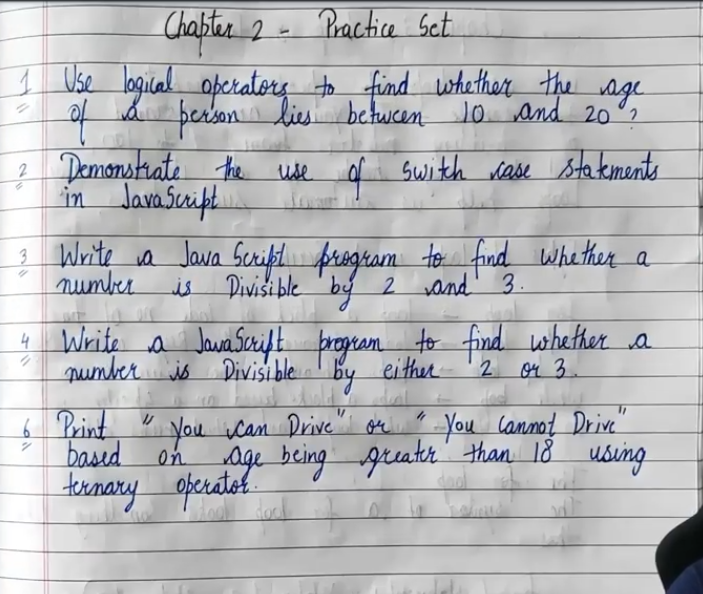 Chapter 2 - Practice Set
1 Use logical operators to find whether the age
of a person lies between 10 and 20 ?
2 Demonstrate the use of switch case statements
in JavaScript
3 Write a Java Script program to find whether a
number is Divisible by 2 and 3.
4 Write a JavaScript program to find whether a
number is Divisible by either 2 or 3.
6 Print "You can Drive" or "You Cannot Drive"
based on age being greater than 18 using
ternary operator.